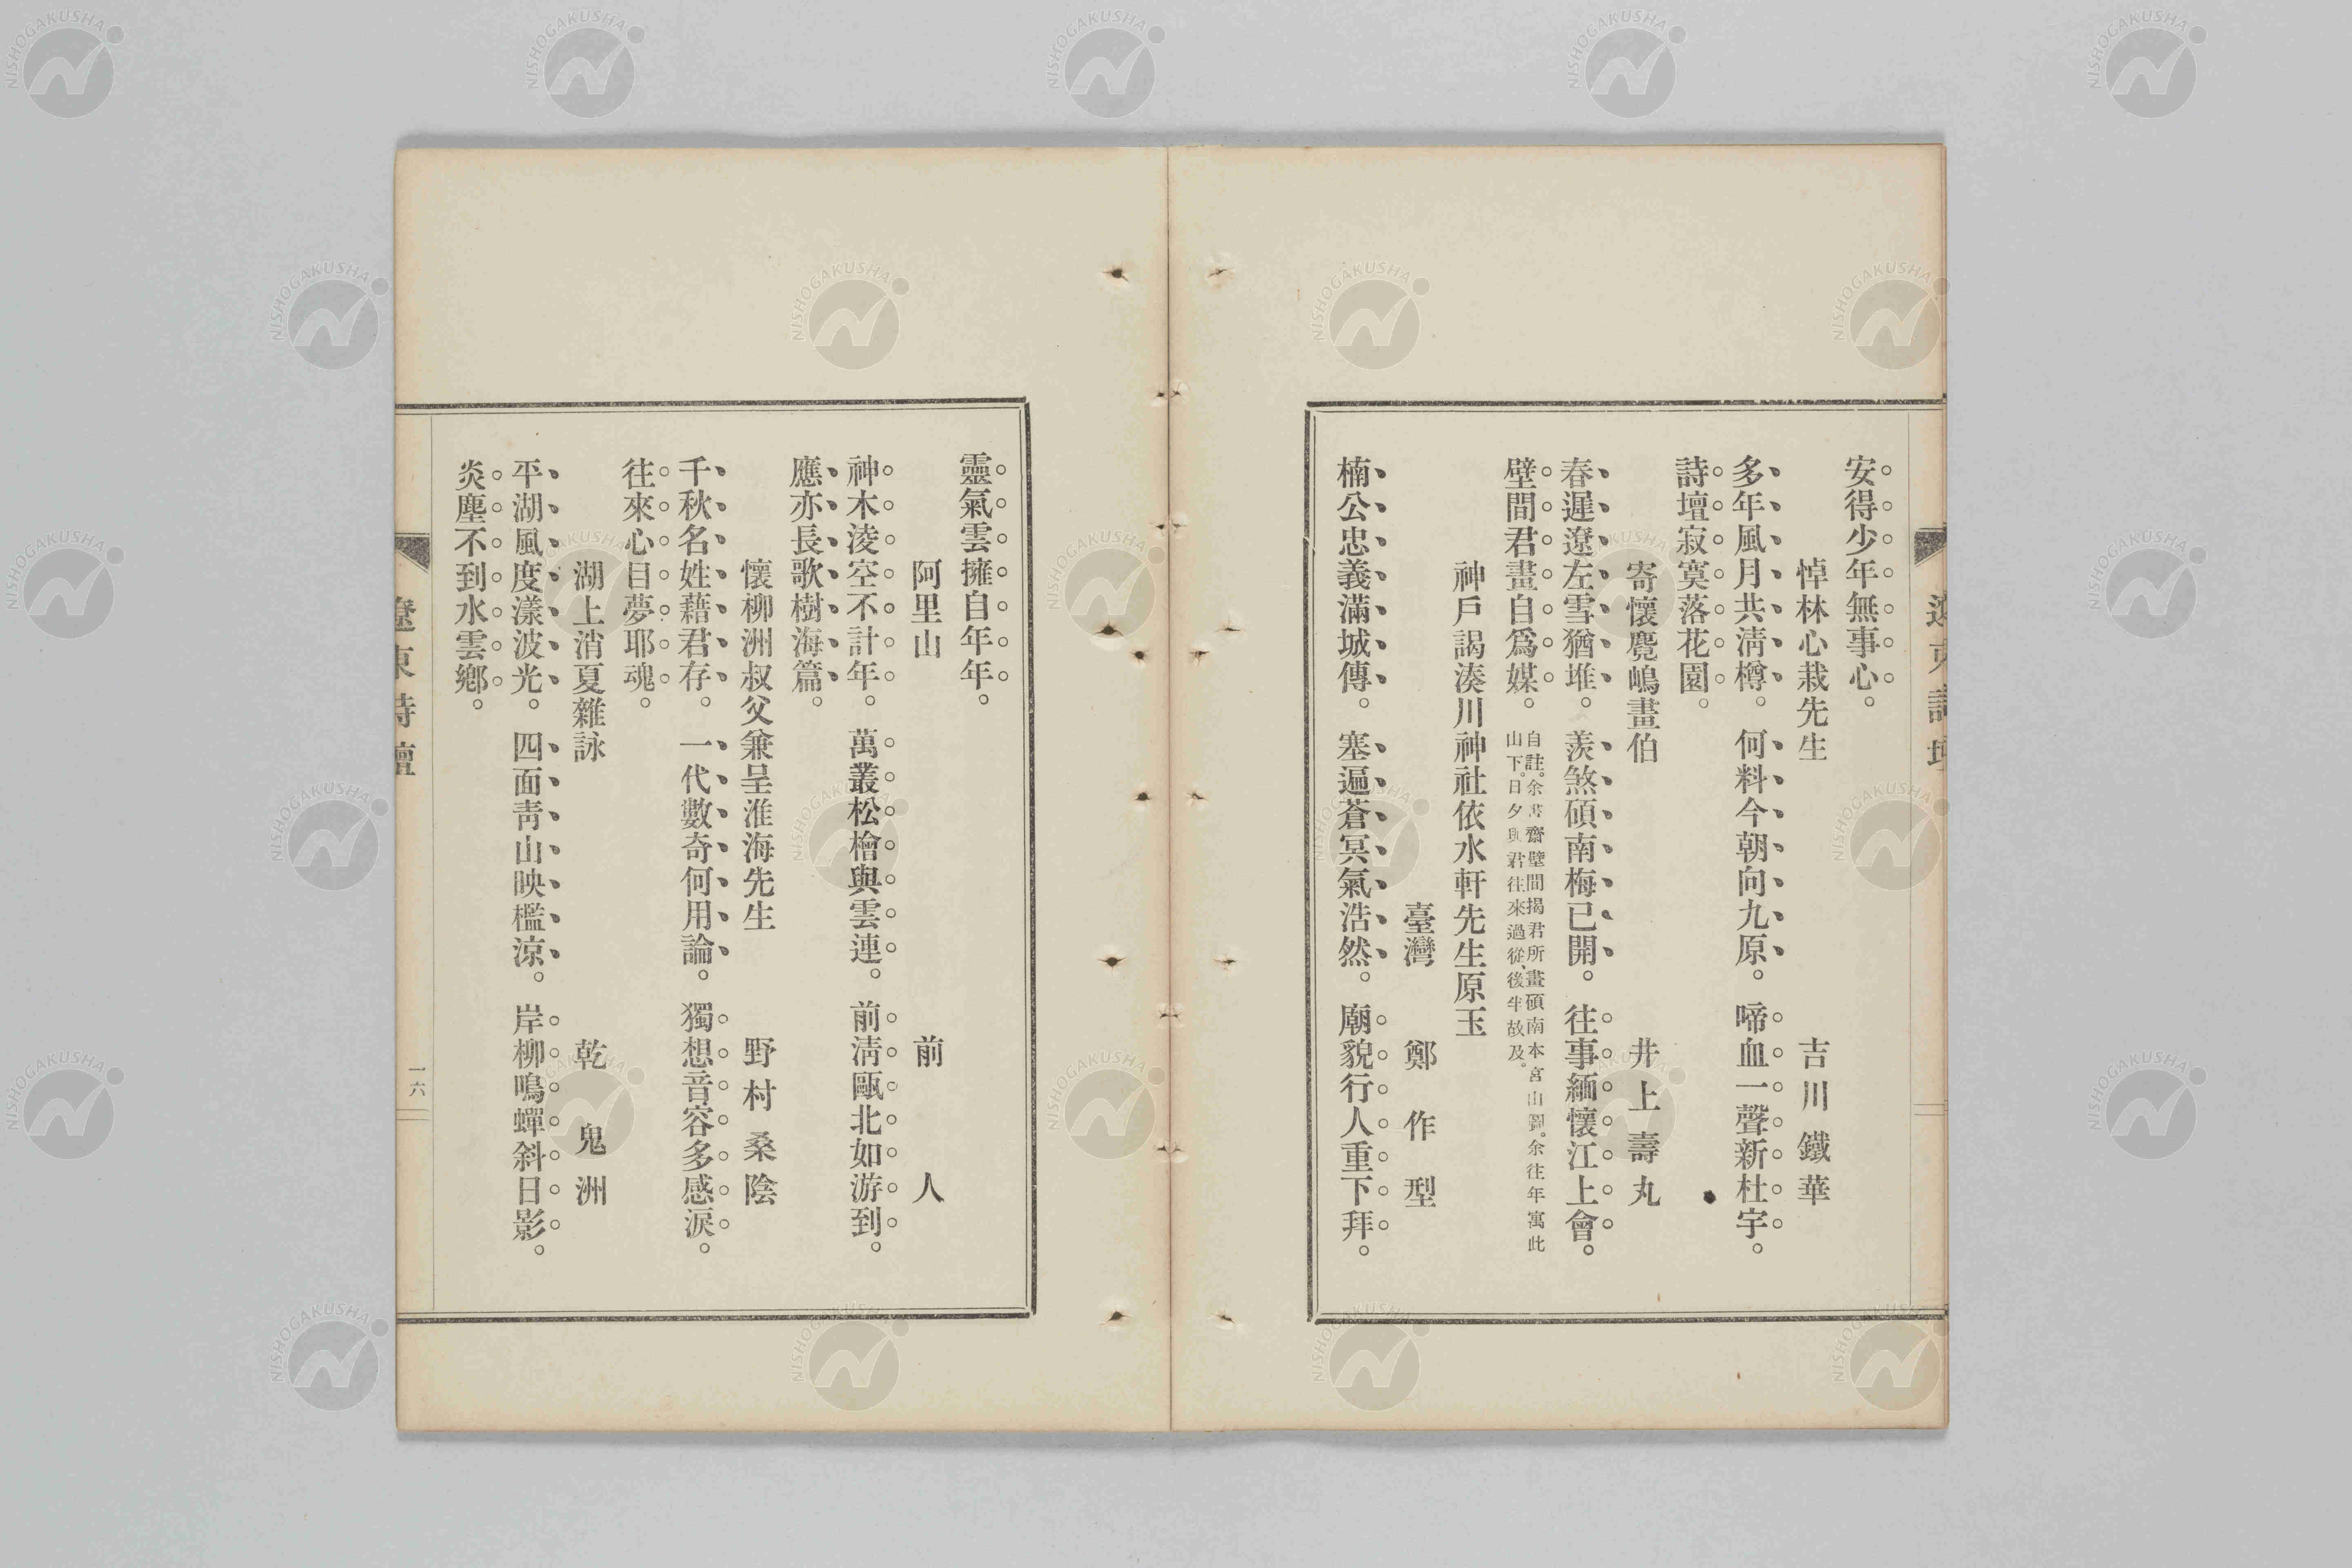 安得少年無事心。
悼林心栽先生　吉川鐵華
多年風月共淸樽。何料今朝向九原。啼血一聲新杜宇。
詩壇寂寞落花園。
寄懷麑嶋畫伯　井上壽丸
春遲遼左雪猶堆。羨煞碩南梅已開。往事緬懷江上會。
壁間君畫自爲媒。
自註。余書齋壁間揭君所畫碩南本宮山圖。余往年寓此
山下。日夕與君往來過從、後半故及。
神戶謁湊川神社依水軒先生原玉
臺灣　鄭作型
楠公忠義滿城傳。塞遍蒼冥氣浩然。廟貌行人重下拜。
靈氣雲擁自年年。
阿里山　前人
神木淩空不計年。萬叢松檜與雲連。前淸甌北如游到。
應亦長歌樹海篇。
懷柳洲叔父兼呈淮海先生　野村桑陰
千秋名姓藉君存。一代數奇何用論。獨想音容多感淚。
往來心目夢耶魂。
湖上消夏雜詠　乾鬼洲
平湖風度漾波光。四面靑山映檻涼。岸柳鳴蟬斜日影。
炎塵不到水雲鄕。
遼東詩壇
一六
NISHOGAKUSHA